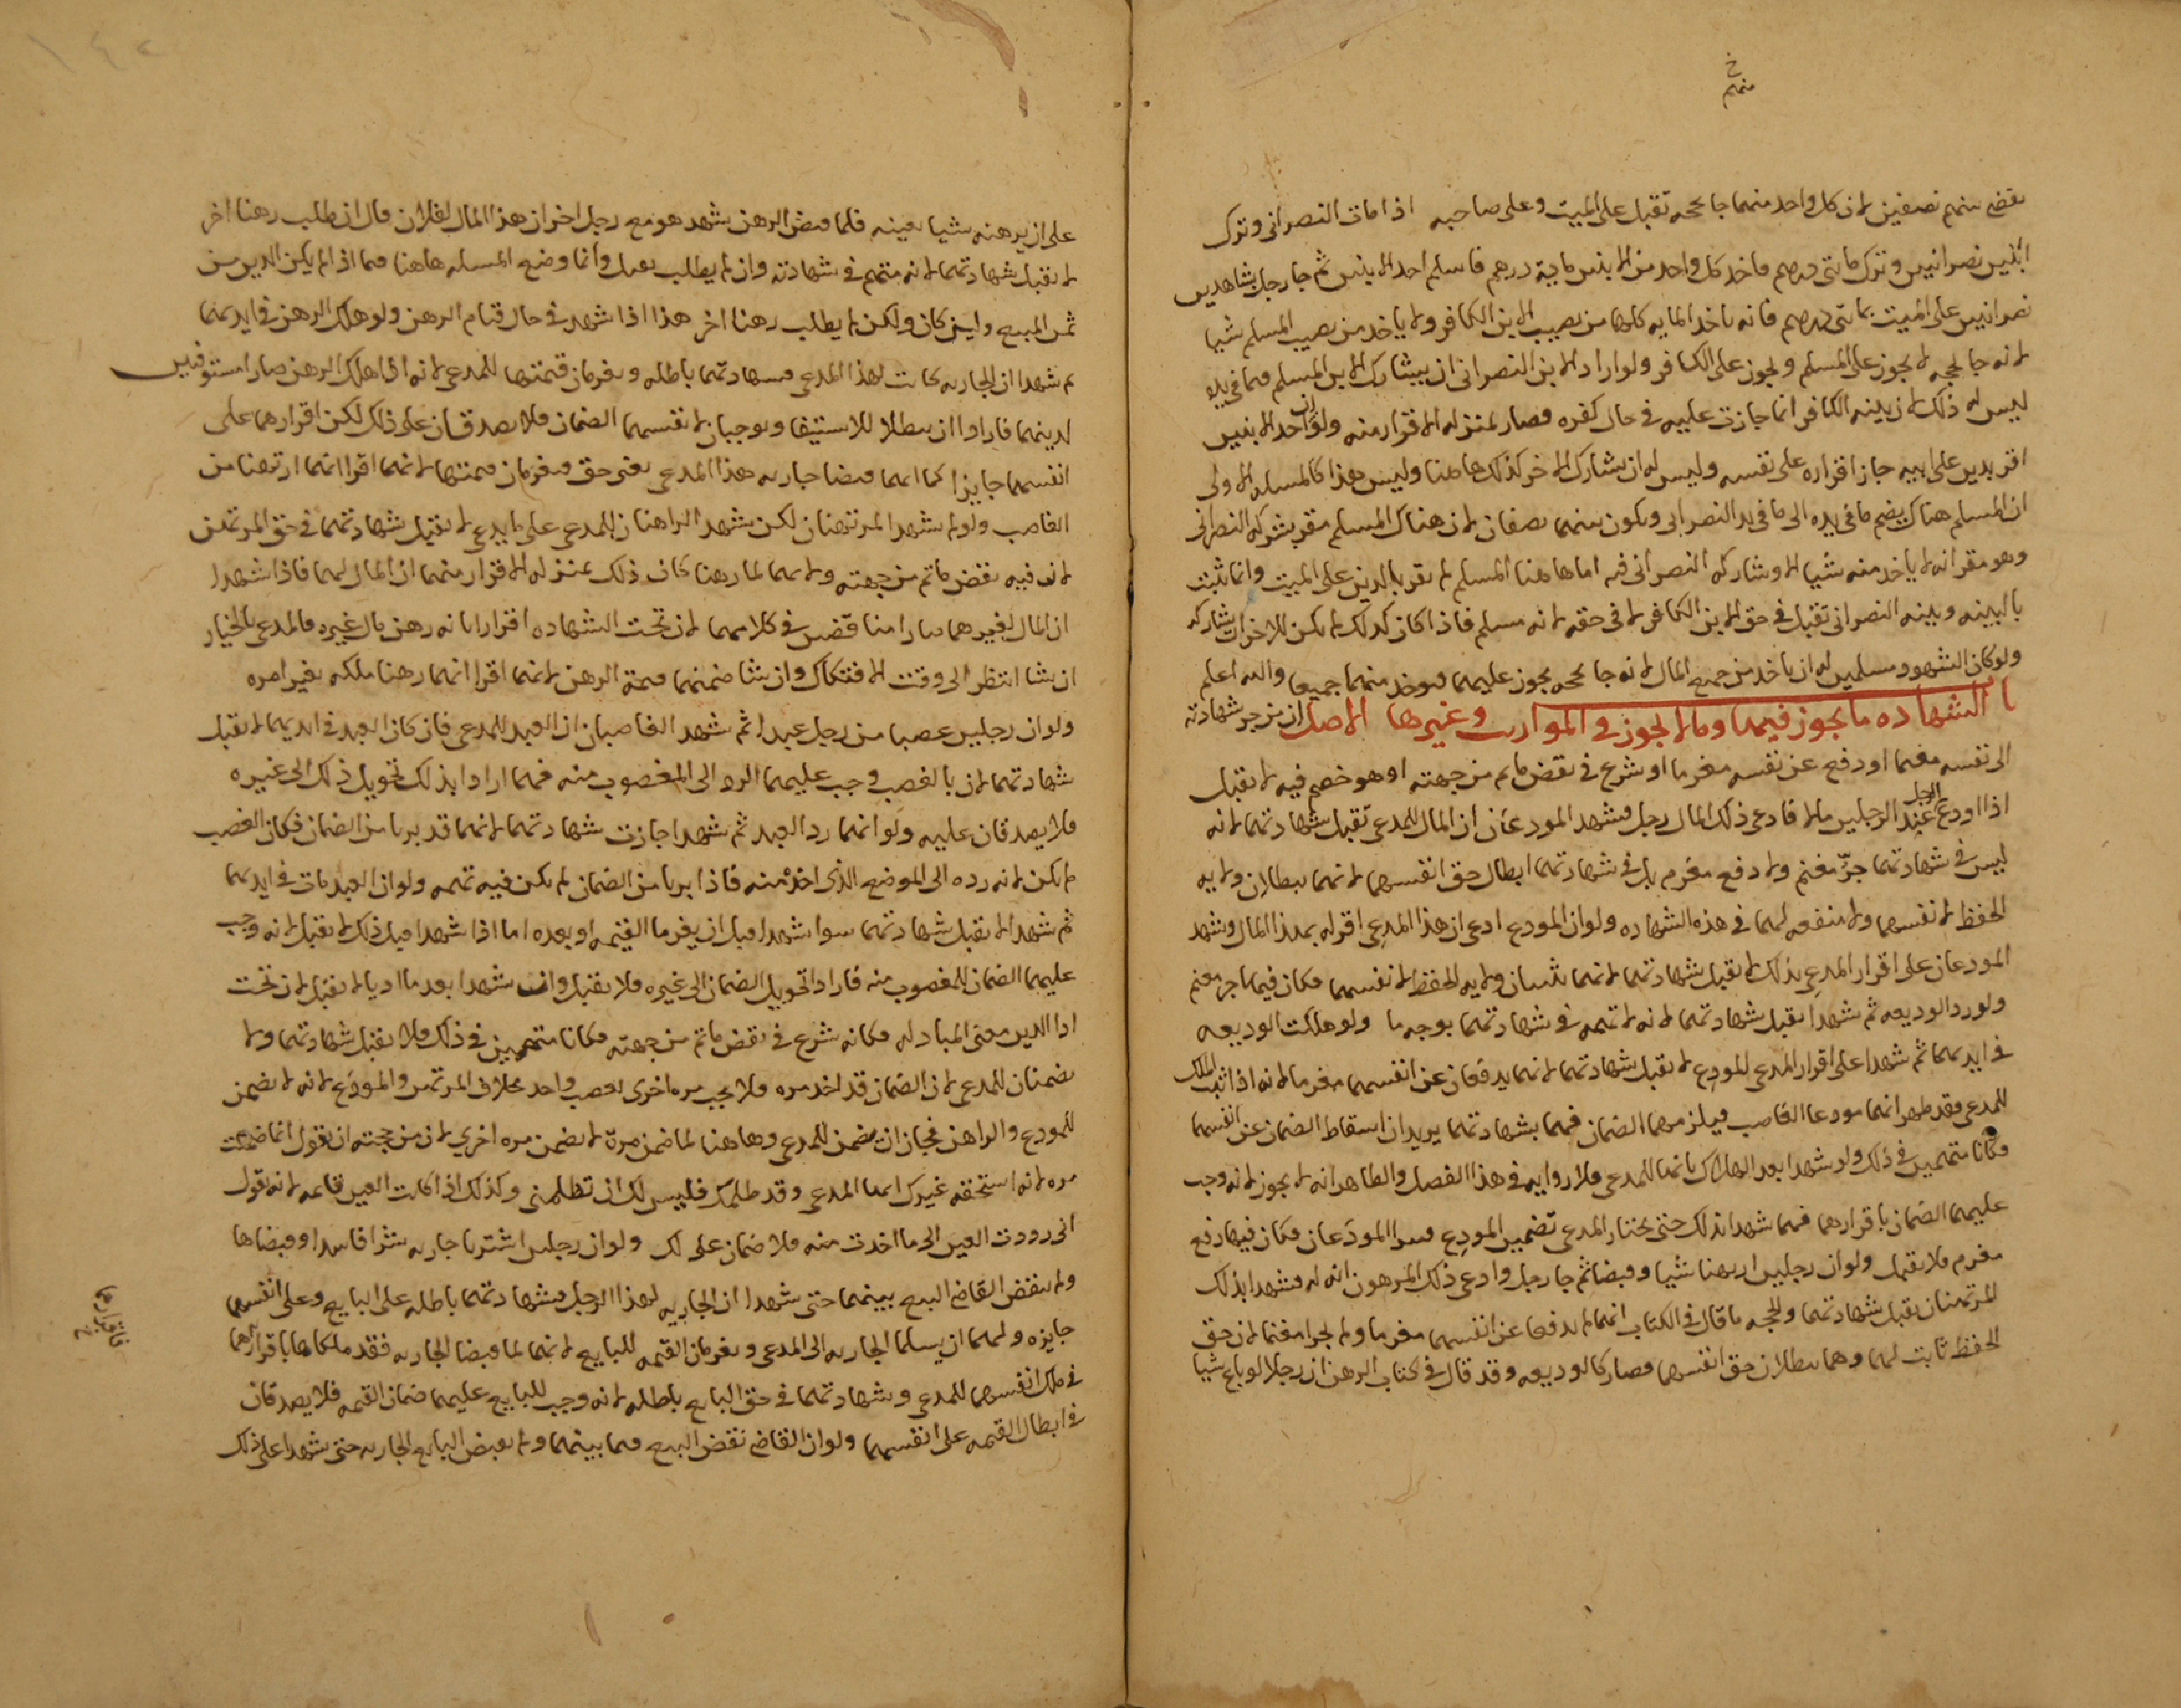 خ
منهم
بقضى بينهم نصفين لان كل واحد منهما جا بحجه تقبل على الميت وعلى صاحبه اذا مات النصراني وترك
ابنين نصرانيين وترك مائتي درهم فاخد كل واحد من الابنين ماية درهم فاسلم احد الابنين ثم جا رجل بشاهدين
نصرانيين على الميت بمائتي درهم فانه ياخد المايه كلها من نصيب الابن الكافر ولا ياخد من نصيب المسلم شيا
لانه جا بحجه لا يجوز على المسلم ويجوز على الكافر ولو اراد الابن النصراني ان يشارك الابن المسلم فيما في يده
ليس له ذلك لان بينه الكافر انما جازت عليه في حال كفره فصار بمنزله الاقرار منه ولو ان احد الابنين
اقر بدين على ابيه جاز اقراره على نفسه وليس له ان يشارك الاخر كذلك هاهنا وليس هذا كالمسله الاولى
ان المسلم هناك يضم ما في يده الى ما في يد النصراني ويكون بينهما نصفان لان هناك المسلم مقر بشركه النصراني
وهو مقر انه لا ياخد منه شيا الا وشاركه النصراني فيه اما هاهنا المسلم لم يقر بالدين على الميت وانما ثبت
بالبينه وبينه النصراني تقبل في حق الابن الكافر لا في حقه لانه مسلم فاذا كان كذلك لم يكن للاخر ان يشاركه
ولو كان الشهود مسلمين له ان ياخد من جميع المال لانه جا بحجه يجوز عليهما فيوخد منهما جميعا والله اعلم
با الشهاده ما يجوز فيها وما لا يجوز في المواريث وغيرها الاصل ان من جر شهادته
الى نفسه مغنما او دفع عن نفسه مغرما او شرع في نقض ما تم من جهته او هو خصم فيه لا تقبل
اذا اودع الرجل عند الرجلين مالا فادعى ذلك المال رجل فشهد المودعان ان المال للمدعي تقبل شهادتهما لانه
ليس في شهادتهما جرّ مغنم ولا دفع مغرم بل في شهادتهما ابطال حق انفسهما لانهما يبطلان ولايه
الحفظ لانفسهما ولا منفعه لهما في هذه الشهاده ولو ان المودع ادعى ان هذا المدعي اقر له بهذا المال وشهد
المودعان على اقرار المدعي بذلك لا يقبل شهادتهما لانهما يثبتان ولايه الحفظ لانفسهما فكان فيهما جر مغنم
ولو ردا الوديعه ثم شهدا يقبل شهادتهما لانه لا تهمه في شهادتهما بوجه ما ولو هلكت الوديعه
في ايديهما ثم شهدا على اقرار المدعي للمودع لا يقبل شهادتهما لانهما يدفعان عن انفسهما مغرما لانه اذا اثبت الملك
للمدعي فقد ظهر انهما مودعا الغاصب فيلزمهما الضمان فهما بشهادتهما يريدان اسقاط الضمان عن انفسهما
فكانا متهمين في ذلك ولو شهدا بعد الهلاك بانها للمدعي فلا روايه في هذا الفصل والظاهر انه لا يجوز لانه وجب
عليهما الضمان باقرارهما فهما شهدا بذلك حتى يختار المدعي تضمين المودع فيبرا المودعان فكان فيها دفع
مغرم فلا يقبل ولو ان رجلين ارتهنا شيا وقبضا ثم جا رجل وادعى ذلك المرهون انه له فشهدا بذلك
المرتهنان يقبل شهادتهما والحجه ما قال في الكتاب انهما لم يدفعا عن انفسهما مغرما ولم يجرا مغنما لان حق
الحفظ ثابت لهما وهما يبطلان حق انفسهما فصار كالوديعه وقد قال في كتاب الرهن ان رجلا لو باع شيا
على ان يرهنه شيا بعينه فلما قبض الرهن شهد هو مع رجل اخر ان هذا المال لفلان قال ان طلب رهنا اخر
لا يقبل شهادتهما لانه متهم في شهادته وان لم يطلب يقبل وانما وضع المسله هاهنا فيما اذا لم يكن الدين من
ثمن المبيع ولين كان ولكن لم يطلب رهنا اخر هذا اذا شهد في حال قيام الرهن ولو هلك الرهن في ايديهما
ثم شهدا ان الجاريه كانت لهذا المدعي فشهادتهما باطله ويغرمان قيمتها للمدعي لانه اذا هلك الرهن صارا مستوفيين
لدينهما فارادا ان يبطلا للاستيفا ويوجبان لانفسهما الضمان فلا يصدقان على ذلك لكن اقرارهما على
انفسهما جايز كما انهما قبضا جاريه هذا المدعي بغير حق فيغرمان قيمتها لانهما اقرا انهما ارتهنا من
الغاصب ولو لم يشهد المرتهنان لكن شهد الراهنان للمدعي على ما يدعي لا يقبل شهادتهما في حق المرتهن
لان فيه نقض ما تم من جهته ولانهما لما رهنا كان ذلك بمنزله الاقرار منهما ان المال لهما فاذا شهدا
ان المال لغيرهما صارا مناقضين في كلامهما لان تحت الشهاده اقرارا بانه رهن مال غيره فالمدعي بالخيار
ان شا انتظر الى وقت الافتكاك وان شا ضمنهما قيمة الرهن لانهما اقرا انهما رهنا ملكه بغير امره
ولو ان رجلين غصبا من رجل عبدا ثم شهد الغاصبان ان العبد للمدعي فان كان العبد في ايديهما لا يقبل
شهادتهما لان بالغصب وجب عليهما الرد الى المغصوب منه فهما ارادا بذلك تحويل ذلك الى غيره
فلا يصدقان عليه ولو انهما ردا العبد ثم شهدا جازت شهادتهما لانهما قد بريا من الضمان فكان الغصب
لم يكن لانه رده الى الموضع الذي اخذ منه فاذا بريا من الضمان لم يكن فيه تهمه ولو ان العبد مات في ايديهما
ثم شهدا لا يقبل شهادتهما سوا شهدا قبل ان يغرما القيمه او بعده اما اذا شهدا قبل ذلك لا يقبل لانه وجب
عليهما الضمان للمغصوب منه فارادا تحويل الضمان الى غيره فلا يقبل وان شهدا بعد ما اديا لا يقبل لان تحت
ادا الدين معنى المبادله فكانه شرع في نقض ما تم من جهته فكانا متهمين في ذلك فلا يقبل شهادتهما ولا
يضمنان للمدعي لان الضمان قد اخد مره فلا يجب مره اخرى بغصب واحد بخلاف المرتهن والمودع لانه لا يضمن
للمودع والراهن فجاز ان يضمن للمدعي وهاهنا لما ضمن مرة لا يضمن مره اخري لان من حجته ان يقول انما ضمنت
مره لانه استحقه غيرك ايها المدعي وقد ظلمك فليس لك ان تظلمني وكذلك اذا كانت العين قايمه لانه يقول
اني رددت العين الى ما اخذت منه فلا ضمان علي لك ولو ان رجلين اشتريا جاريه شرا فاسدا وقبضاها
ولم ينقض القاضي البيع بينهما حتى شهدا ان الجاريه لهذا الرجل فشهادتهما باطله على البايع وعلى انفسهما
جايزه ولهما ان يسلما الجاريه الى المدعي ويغرمان القيمه للبايع لانهما لما قبضا الجاريه فقد ملكاها باقرارهما
في ملك انفسهما للمدعي وشهادتهما في حق البايع باطله لانه وجب للبايع عليهما ضمان القيمه فلا يصدقان
في ابطال القيمه على انفسهما ولو ان القاضي نقض البيع فيما بينهما ولم يقبض البايع الجاريه حتى شهدا على ذلك
فاقرارهما
خ